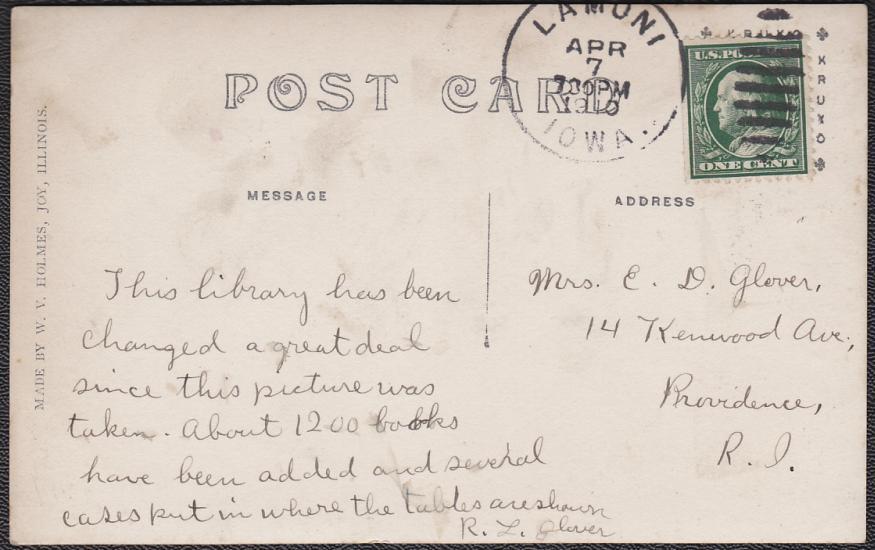 LAMONI
APR
7
730PM
1910
IOWA.
U.S. PO
ONE CENT
KRUXO
KRUXO
POST CARD
MADE BY W. V. HOLMES, JOY, ILLINOIS.
MESSAGE
ADDRESS
This library has been
changed a great deal
since this picture was
taken. About 1200 books
have been added and several
cases put in where the tables are shown
R. L. Glover
Mrs. E. D. Glover,
14 Kenwood Ave,
Providence,
R. I.